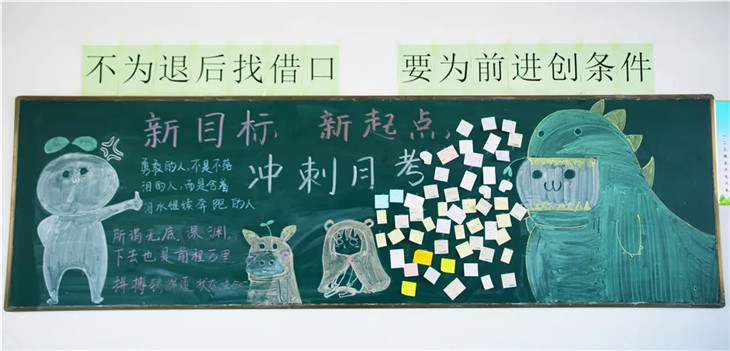 不为退后找借口
要为前进创条件
新目标 新起点，
冲刺月考
勇敢的人，不是不落
泪的人，而是含着
泪水继续奔跑的人
所谓无底深渊，
下去也是前程万里
拼搏